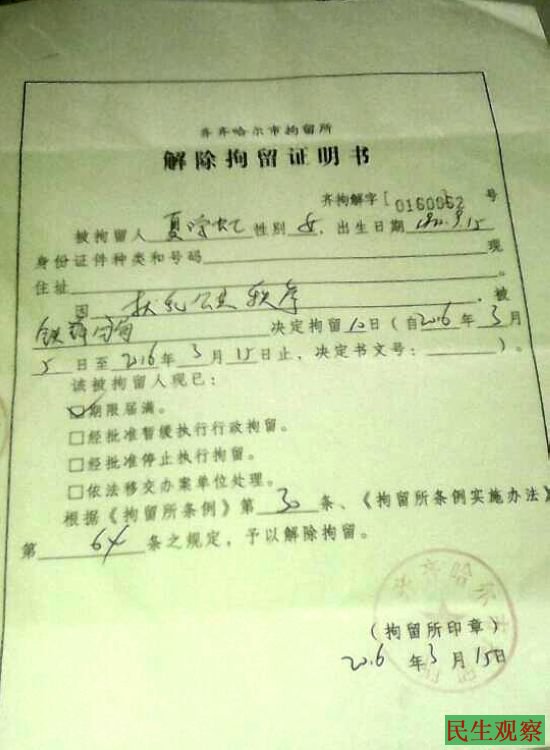 齐齐哈尔市拘留所
解除拘留证明书
齐拘解字[0160062 号
被拘留人 夏 性别 女,出生日期
身份证件种类和号码 现
住址 。
因 扰乱公共秩序 ,被
铁 分局 决定拘留 10日(自2016 年 3 月
5 日至 2016年 3 月 15日止,决定书文号: )。
该被拘留人现已:
☑期限届满。
□经批准暂缓执行行政拘留。
□经批准停止执行拘留。
□依法移交办案单位处理。
根据《拘留所条例》第 30 条、《拘留所条例实施办法》
第 64 条之规定,予以解除拘留。
齐齐哈尔
(拘留所印章)
2016 年 3 月 15日
民生观察